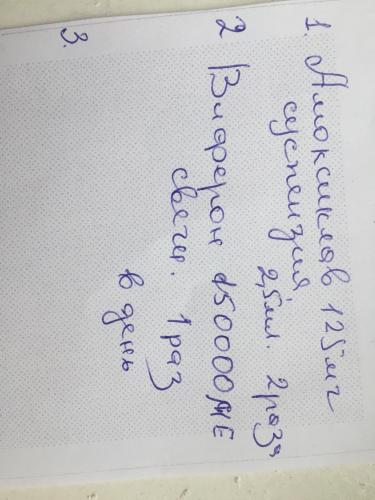 1. Амоксиклав 125мг
суспензия
2,5мл. 2 раза
2 Виферон 150000 МЕ
свечи. 1 раз
в день
3.